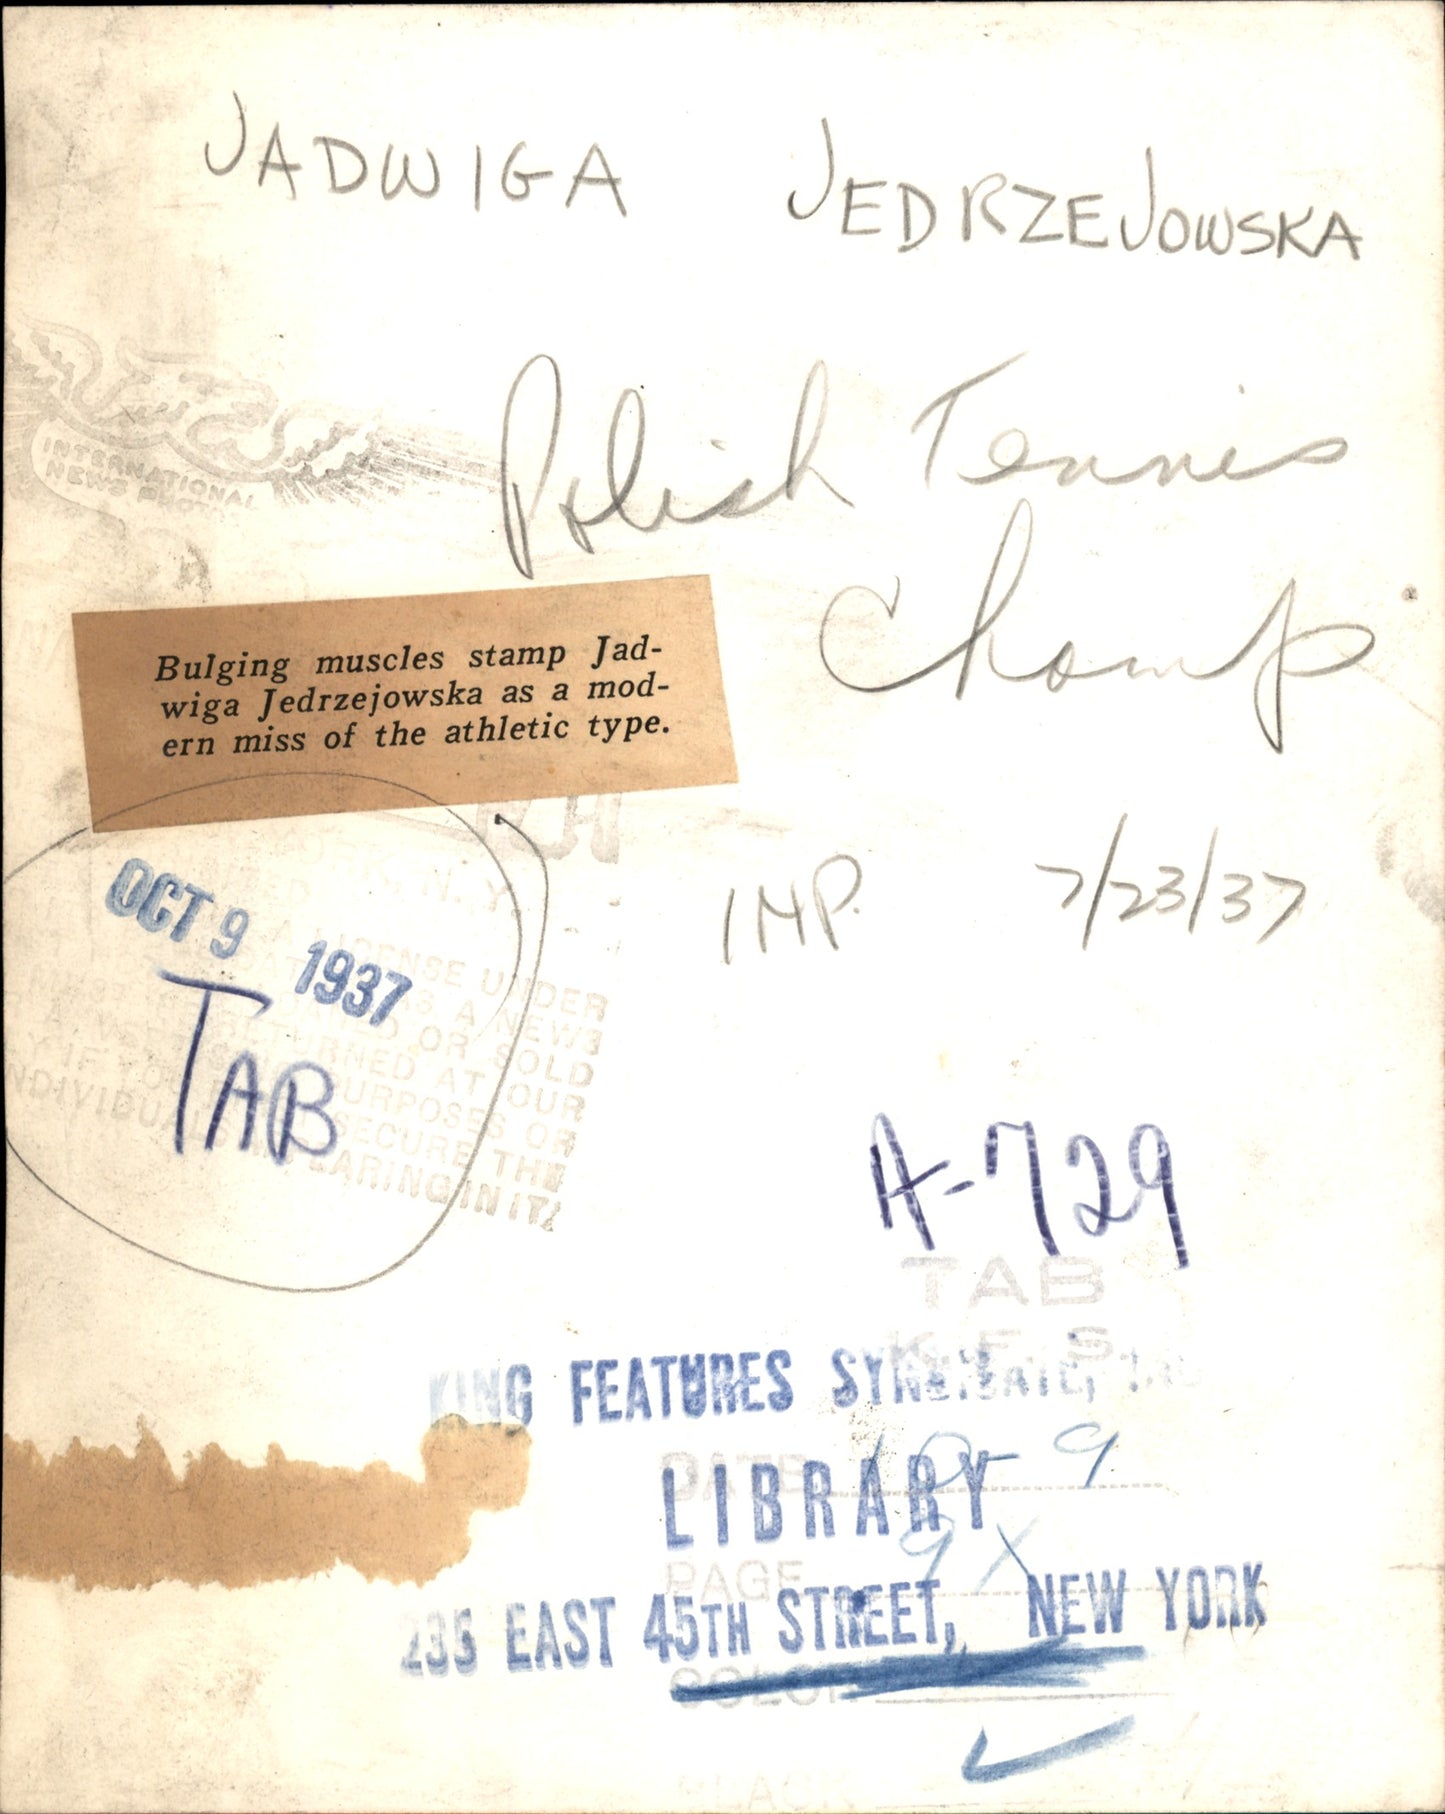 JADWIGA JEDRZEJOWSKA
Polish Tennis
Champ
INTERNATIONAL
NEWS PHOTO
Bulging muscles stamp Jad-
wiga Jedrzejowska as a mod-
ern miss of the athletic type.
INP. 7/23/37
OCT 9 1937
TAB
YORK, N. Y.
A LICENSE UNDER
AS A NEWS
OR SOLD
RETURNED AT OUR
PURPOSES OR
SECURE THE
INDIVIDUAL APPEARING IN IT
A-729
TAB
K. F. S.
KING FEATURES SYNDICATE, INC
DATE 10-9
LIBRARY
PAGE 9X
235 EAST 45TH STREET, NEW YORK
COLOR
BLACK